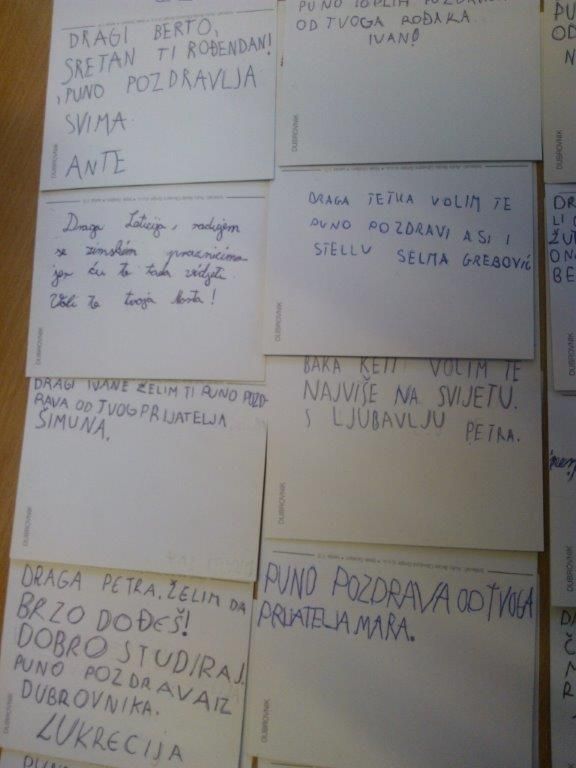 DRAGI BERTO,
SRETAN TI ROĐENDAN!
PUNO POZDRAVLJA
SVIMA
ANTE
DUBROVNIK
PUNO TOPLIH POZDRAVA
OD TVOGA ROĐAKA
IVAN!
DUBROVNIK
Draga Leticija, radujem
se zimskim praznicima
jer ću te tada vidjeti.
Voli te tvoja
DUBROVNIK
DRAGA TETKA VOLIM TE
PUNO POZDRAVI ASI I
STELLU SELMA GREBOVIĆ
DUBROVNIK
DRAGI IVANE ŽELIM TI PUNO POZD-
RAVA OD TVOG PRIJATELJA
ŠIMUNA.
DUBROVNIK
BAKA KETI VOLIM TE
NAJVIŠE NA SVIJETU.
S LJUBAVLJU PETRA.
DUBROVNIK
DRAGA PETRA, ŽELIM DA
BRZO DOĐEŠ!
DOBRO STUDIRAJ.
PUNO POZDRAVA IZ
DUBROVNIKA.
LUKRECIJA
DUBROVNIK
PUNO POZDRAVA OD TVOGA
PRIJATELJA MARA.
DUBROVNIK